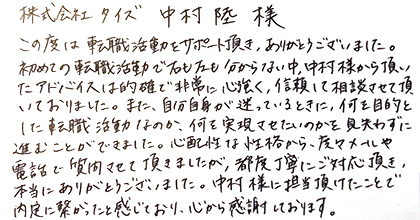 株式会社タイズ 中村陸様
この度は転職活動をサポート頂き、ありがとうございました。
初めての転職活動で右も左も分からない中、中村様から頂い
たアドバイスは的確で非常に心強く、信頼して相談させて頂
いておりました。また、自分自身が迷っているときに、何を目的と
した転職活動なのか、何を実現させたいのかを見失わずに
進むことができました。心配性な性格から、度々メールや
電話で質問させて頂きましたが、都度丁寧にご対応頂き、
本当にありがとうございました。中村様に担当頂けたことで
内定に繋がったと感じており、心から感謝しております。